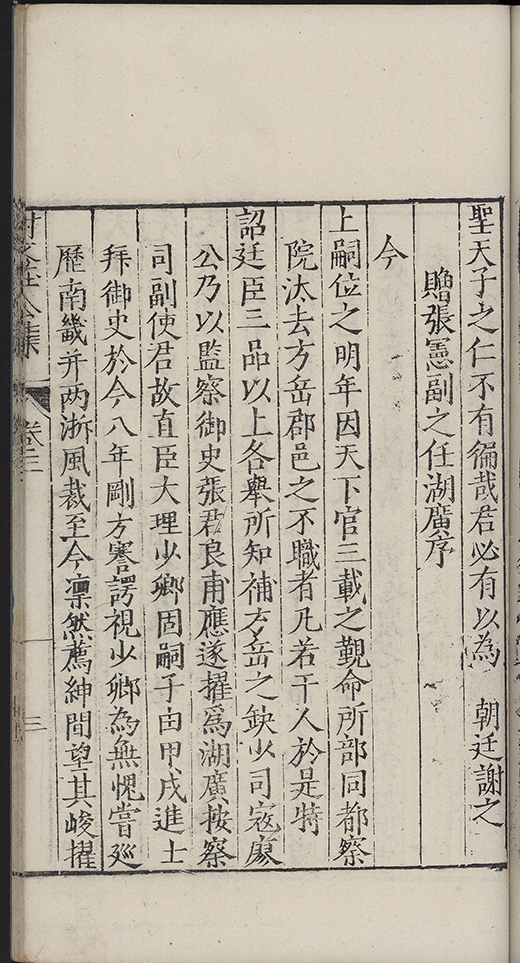 聖天子之仁不有徧哉君必有以為 朝廷謝之
贈張憲副之任湖廣序
今
上嗣位之明年因天下官三載之覲命所部同都察
院汰去方岳郡邑之不職者凡若干人於是特
詔廷臣三品以上各舉所知補方岳之缺少司寇廖
公乃以監察御史張君良甫應遂擢爲湖廣按察
司副使君故直臣大理少卿固嗣子由甲戌進士
拜御史於今八年剛方謇諤視少卿為無愧嘗廵
歷南畿并两浙風裁至今凛然薦紳間望其峻擢
卷三
三